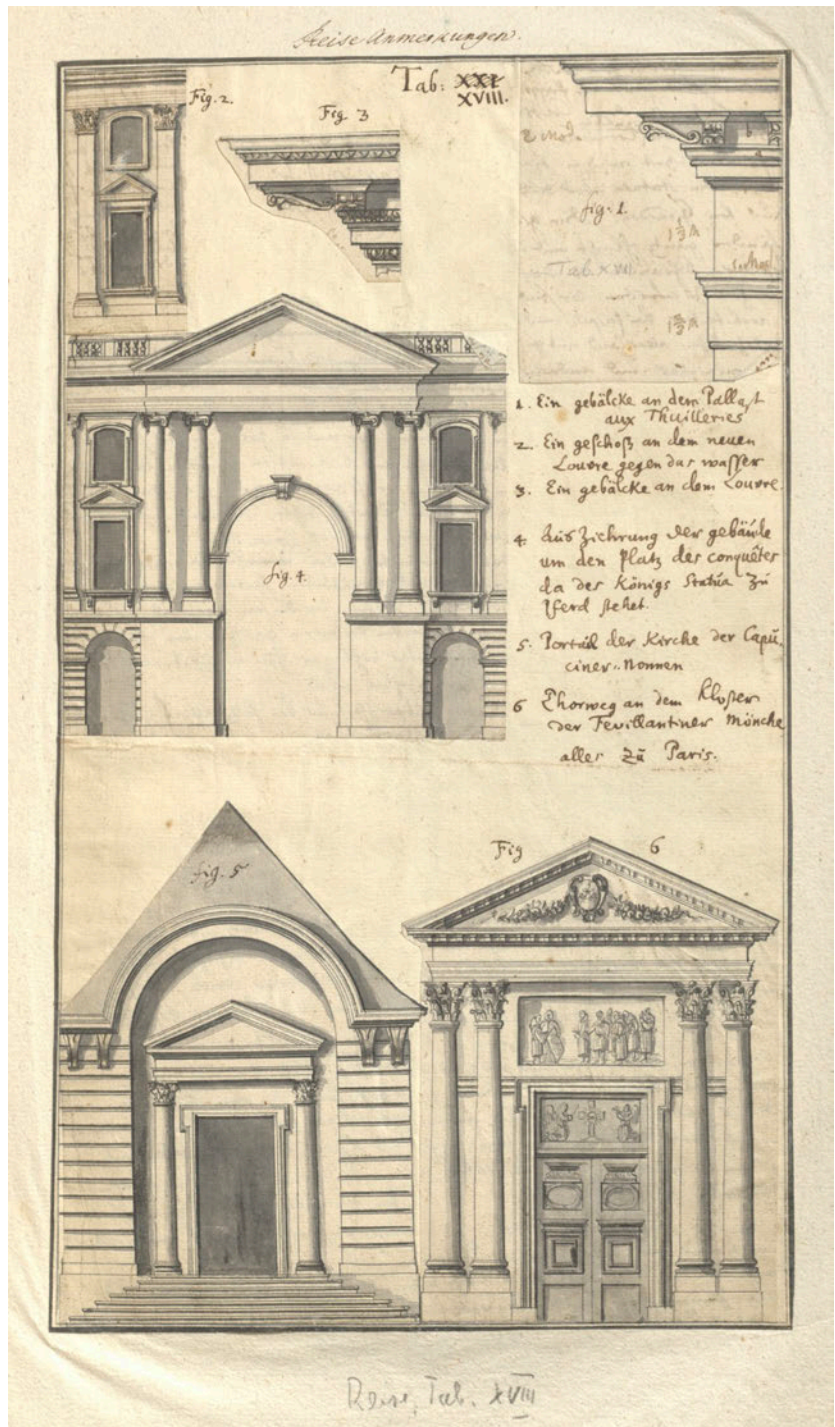 Reise Anmerkungen.
Tab: XXI
XVIII.
Fig. 2.
Fig 3
fig. 1.
2 Mod.
b
a
1 2/3 A
Tab. XVII
1 2/3 A
1. Ein gebälcke an dem Pallast
aux Thuilleries
2. Ein geschoß an dem neuen
Louvre gegen das wasser
3. Ein gebälcke an dem Louvre.
4. Aus Ziehrung der gebäude
um den Platz des conquêtes
da des Königs Statua zu
Pferd stehet.
5. Portal der Kirche der Capu.
ciner-Nonnen
6 Thorweg an dem Kloster
der Feuillantiner Mönche
alles zu Paris.
fig. 4.
fig. 5
Fig 6
Reise, Tab. XVIII